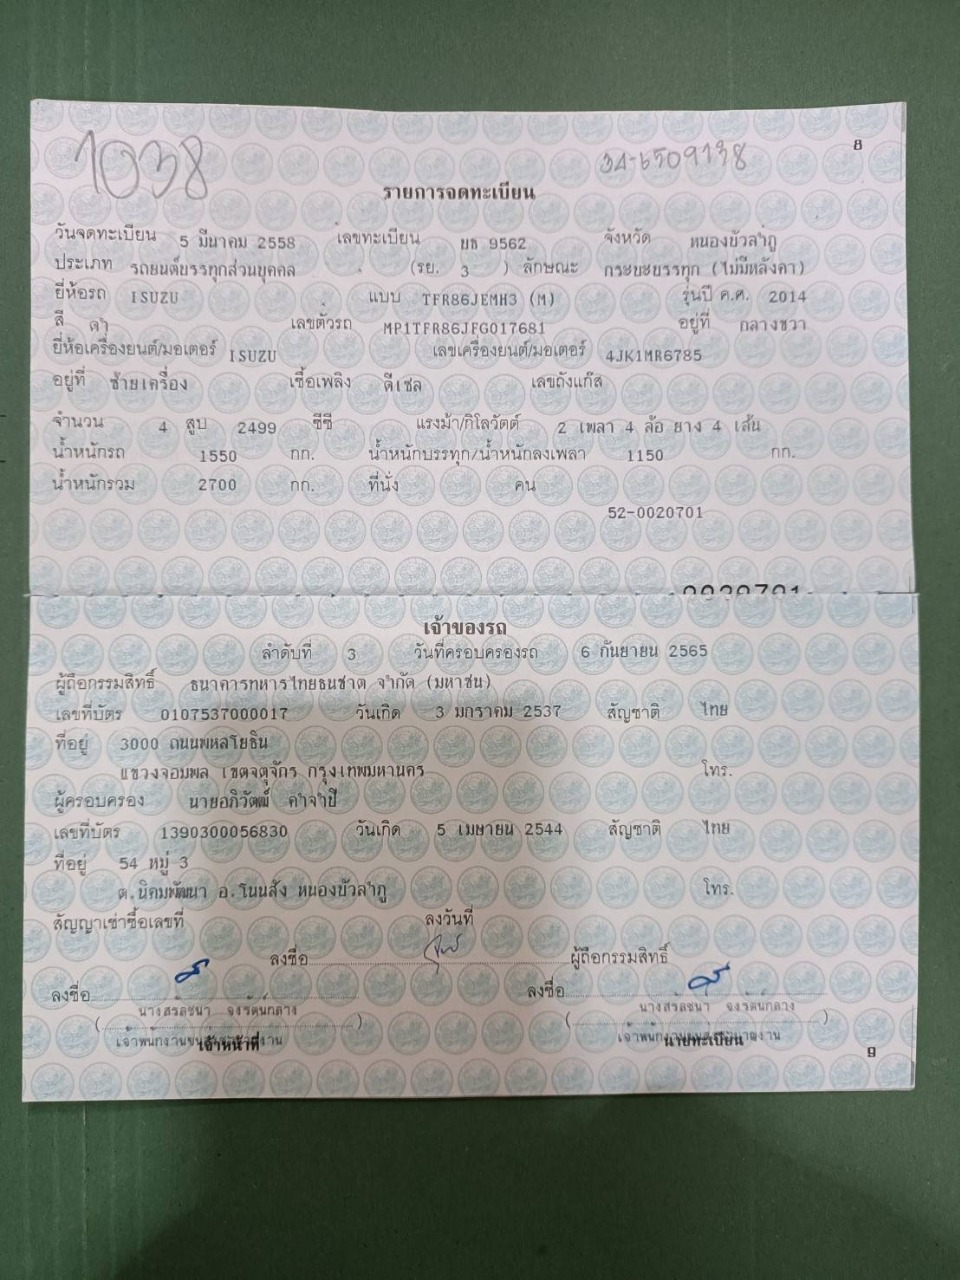 1038
34-6509138
8
รายการจดทะเบียน
วันจดทะเบียน 5 มีนาคม 2558 เลขทะเบียน ยธ 9562 จังหวัด หนองบัวลำภู
ประเภท รถยนต์บรรทุกส่วนบุคคล (รย. 3 ) ลักษณะ กระบะบรรทุก (ไม่มีหลังคา)
ยี่ห้อรถ ISUZU แบบ TFR86JEMH3 (M) รุ่นปี ค.ศ. 2014
สี ดำ เลขตัวรถ MP1TFR86JFG017681 อยู่ที่ กลางขวา
ยี่ห้อเครื่องยนต์/มอเตอร์ ISUZU เลขเครื่องยนต์/มอเตอร์ 4JK1MR6785
อยู่ที่ ซ้ายเครื่อง เชื้อเพลิง ดีเซล เลขถังแก๊ส
จำนวน 4 สูบ 2499 ซีซี แรงม้า/กิโลวัตต์ 2 เพลา 4 ล้อ ยาง 4 เส้น
น้ำหนักรถ 1550 กก. น้ำหนักบรรทุก/น้ำหนักลงเพลา 1150 กก.
น้ำหนักรวม 2700 กก. ที่นั่ง คน
52-0020701
0020701
เจ้าของรถ
ลำดับที่ 3 วันที่ครอบครองรถ 6 กันยายน 2565
ผู้ถือกรรมสิทธิ์ ธนาคารทหารไทยธนชาต จำกัด (มหาชน)
เลขที่บัตร 0107537000017 วันเกิด 3 มกราคม 2537 สัญชาติ ไทย
ที่อยู่ 3000 ถนนพหลโยธิน
แขวงจอมพล เขตจตุจักร กรุงเทพมหานคร โทร.
ผู้ครอบครอง นายอภิวัฒน์ คำจำปี
เลขที่บัตร 1390300056830 วันเกิด 5 เมษายน 2544 สัญชาติ ไทย
ที่อยู่ 54 หมู่ 3
ต.นิคมพัฒนา อ.โนนสัง หนองบัวลำภู โทร.
สัญญาเช่าซื้อเลขที่ ลงวันที่
ลงชื่อ ผู้ถือกรรมสิทธิ์
ลงชื่อ ลงชื่อ
( นางสรัลชนา จงรัตน์กลาง ) ( นางสรัลชนา จงรัตน์กลาง )
เจ้าหน้าที่ นายทะเบียน
9